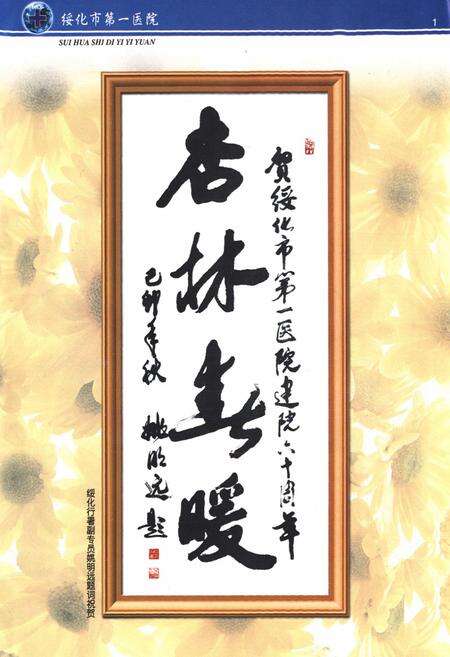 绥化市第一医院
1
SUI HUA SHI DI YI YI YUAN
贺绥化市第一医院建院六十周年
杏林春暖
己卯年秋 姚明远题
绥化行署副专员姚明远题词祝贺